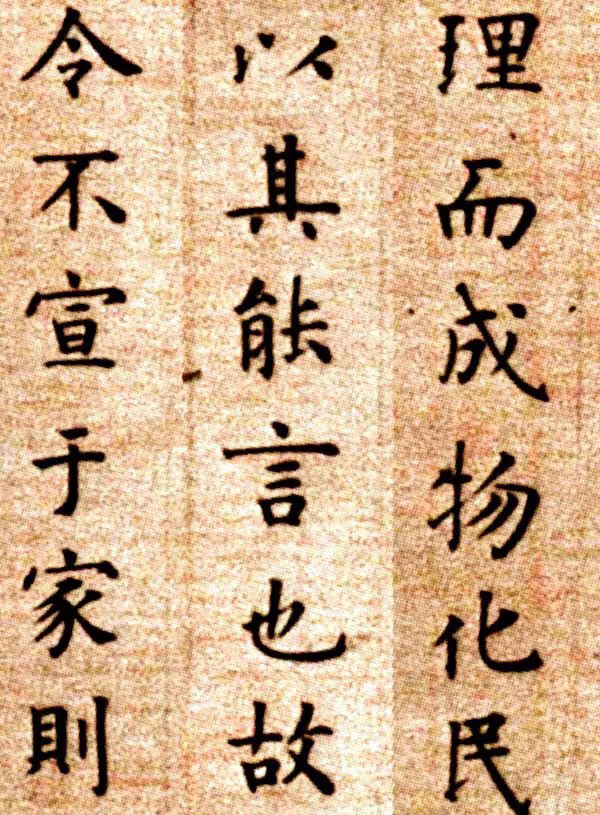 理而成物化民
以其能言也故
令不宣于家則